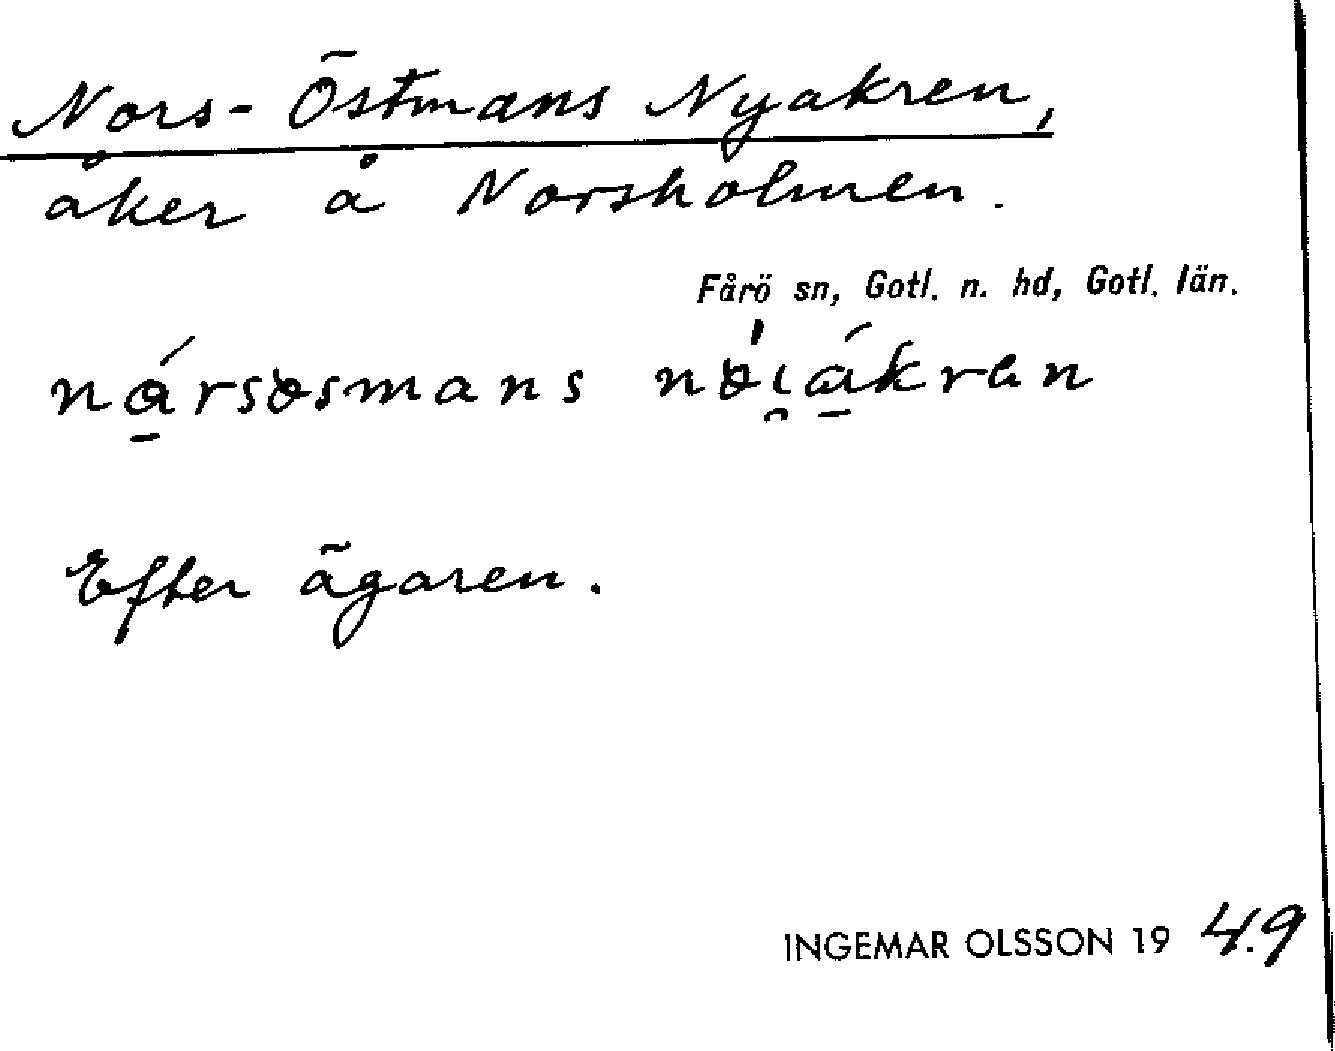 Nors-Östmans Nyakren,
åker å Norsholmen.
Fårö sn, Gotl. n. hd, Gotl. län.
Efter ägaren.
INGEMAR OLSSON 19 49